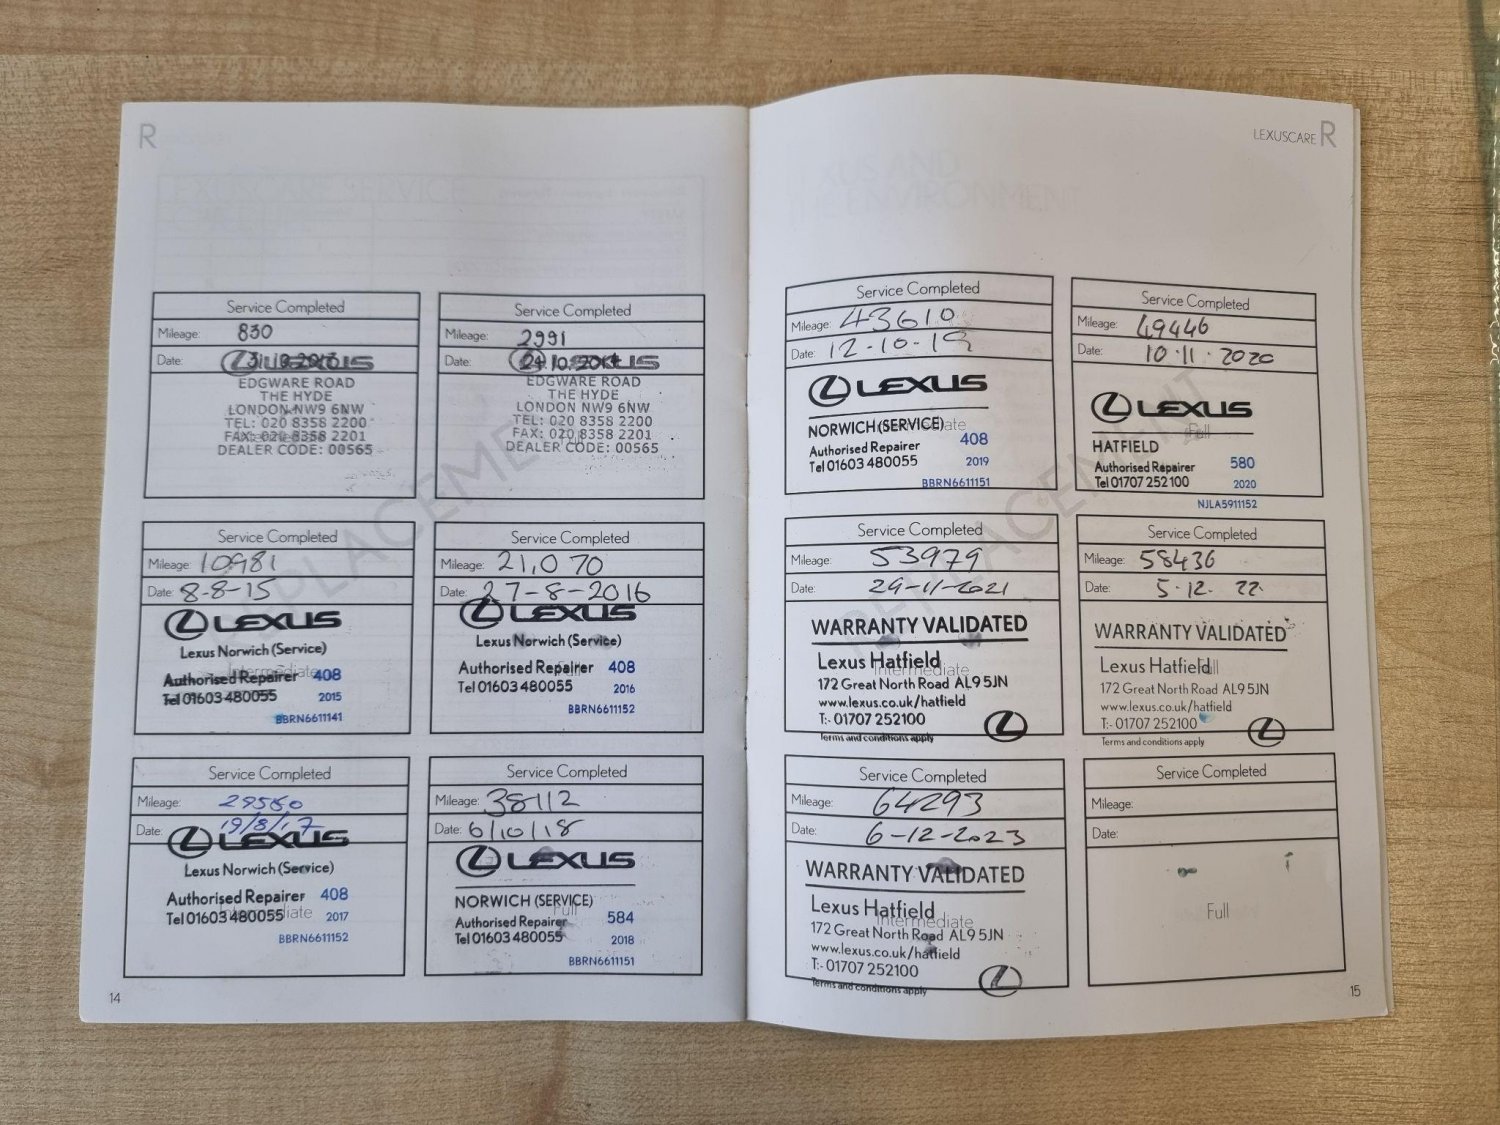 R
Service Completed
Mileage: 830
Date: 31.10.2013 LEXUS
EDGWARE ROAD
THE HYDE
LONDON NW9 6NW
TEL: 020 8358 2200
FAX: 020 8358 2201
DEALER CODE: 00565
Service Completed
Mileage: 2991
Date: 24.10.2014 LEXUS
EDGWARE ROAD
THE HYDE
LONDON NW9 6NW
TEL: 020 8358 2200
FAX: 020 8358 2201
DEALER CODE: 00565
Service Completed
Mileage: 10981
Date: 8-8-15
LEXUS
Lexus Norwich (Service)
Intermediate
Authorised Repairer 408
Tel 01603 480055 2015
BBRN6611141
Service Completed
Mileage: 21,070
Date: 27-8-2016
LEXUS
Lexus Norwich (Service)
Authorised Repairer 408
Full
Tel 01603 480055 2016
BBRN6611152
Service Completed
Mileage: 29560
Date: 19/8/17
LEXUS
Lexus Norwich (Service)
Authorised Repairer 408
Tel 01603 480055 2017
BBRN6611152
Service Completed
Mileage: 38112
Date: 6/10/18
LEXUS
NORWICH (SERVICE)
Full
Authorised Repairer 584
Tel 01603 480055 2018
BBRN6611151
14
REPLACEMENT
LEXUSCARE R
Service Completed
Mileage: 43610
Date: 12-10-19
LEXUS
NORWICH (SERVICE)
Authorised Repairer 408
Tel 01603 480055 2019
BBRN6611151
Service Completed
Mileage: 49446
Date: 10.11.2020
LEXUS
Full
HATFIELD
Authorised Repairer 580
Tel 01707 252100 2020
NJLA5911152
Service Completed
Mileage: 53979
Date: 29-11-2021
WARRANTY VALIDATED
Lexus Hatfield
Intermediate
172 Great North Road AL9 5JN
www.lexus.co.uk/hatfield
T:- 01707 252100
Terms and conditions apply
Service Completed
Mileage: 58436
Date: 5.12.22.
WARRANTY VALIDATED
Lexus Hatfield
Full
172 Great North Road AL9 5JN
www.lexus.co.uk/hatfield
T:- 01707 252100
Terms and conditions apply
Service Completed
Mileage: 64293
Date: 6-12-2023
WARRANTY VALIDATED
Lexus Hatfield
Intermediate
172 Great North Road AL9 5JN
www.lexus.co.uk/hatfield
T:- 01707 252100
Terms and conditions apply
Service Completed
Mileage:
Date:
Full
15
REPLACEMENT